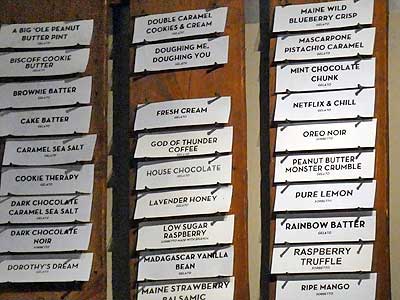 A BIG 'OLE PEANUT
BUTTER PINT
GELATO
BISCOFF COOKIE
BUTTER
GELATO
BROWNIE BATTER
GELATO
CAKE BATTER
GELATO
CARAMEL SEA SALT
GELATO
COOKIE THERAPY
GELATO
DARK CHOCOLATE
CARAMEL SEA SALT
GELATO
DARK CHOCOLATE
NOIR
SORBETTO
DOROTHY'S DREAM
GELATO
DOUBLE CARAMEL
COOKIES & CREAM
GELATO
DOUGHING ME,
DOUGHING YOU
GELATO
FRESH CREAM
GELATO
GOD OF THUNDER
COFFEE
GELATO
HOUSE CHOCOLATE
GELATO
LAVENDER HONEY
GELATO
LOW SUGAR
RASPBERRY
MADAGASCAR VANILLA
BEAN
GELATO
MAINE STRAWBERRY
BALSAMIC
MAINE WILD
BLUEBERRY CRISP
GELATO
MASCARPONE
PISTACHIO CARAMEL
GELATO
MINT CHOCOLATE
CHUNK
GELATO
NETFLIX & CHILL
GELATO
OREO NOIR
SORBETTO
PEANUT BUTTER
MONSTER CRUMBLE
GELATO
PURE LEMON
SORBETTO
RAINBOW BATTER
GELATO
RASPBERRY
TRUFFLE
SORBETTO
RIPE MANGO
SORBETTO